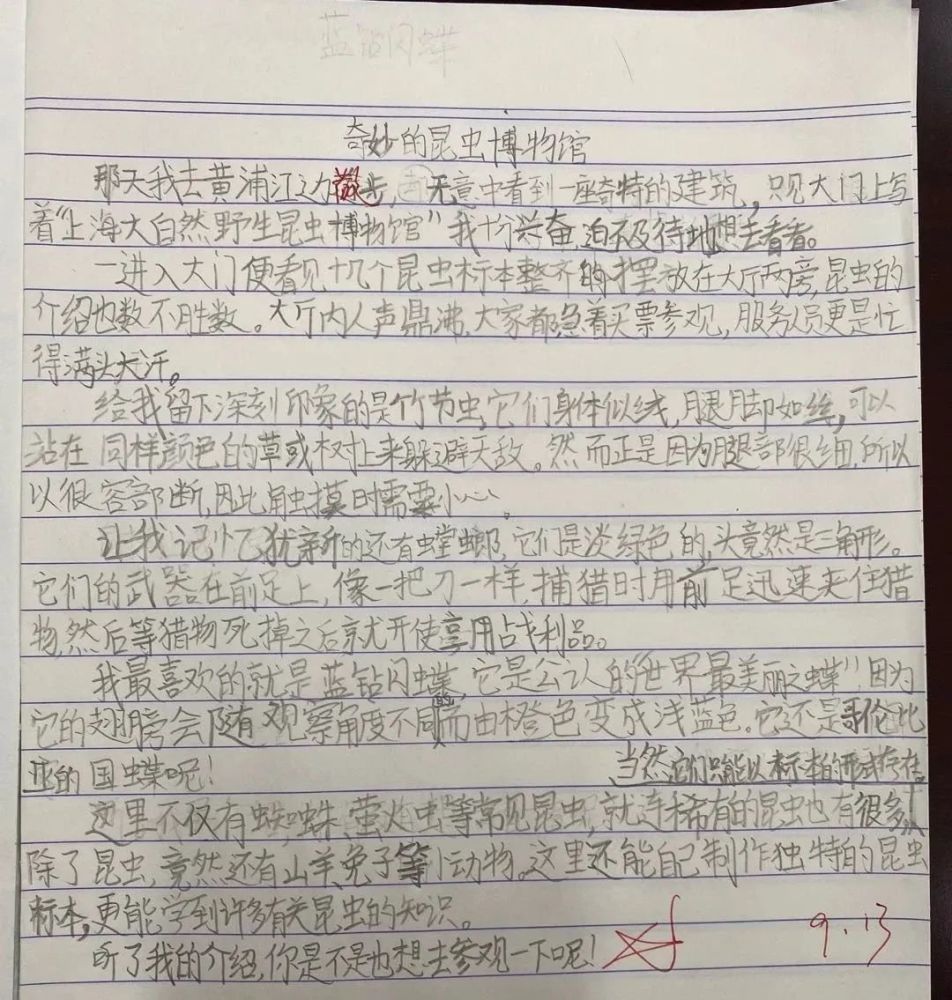 蓝钻闪蝶
奇妙的昆虫博物馆
那天我去黄浦江边散步,无意中看到一座奇特的建筑,只见大门上写
着“上海大自然野生昆虫博物馆”我十分兴奋迫不及待地想去看看。
一进入大门便看见十几个昆虫标本整齐的摆放在大厅两旁,昆虫的
介绍也数不胜数。大厅内人声鼎沸,大家都急着买票参观,服务员更是忙
得满头大汗。
给我留下深刻印象的是竹节虫,它们身体似线,腿脚如丝,可以
站在同样颜色的草或树上来躲避天敌。然而正是因为腿部很细,所以
以很容部断,因此触摸时需要小心。
让我记忆犹新的还有螳螂,它们是淡绿色的,头竟然是三角形。
它们的武器在前足上,像一把刀一样,捕猎时用前足迅速夹住猎
物,然后等猎物死掉之后就开使享用战利品。
我最喜欢的就是蓝钻闪蝶,它是公认的“世界最美丽之蝶”因为
它的翅膀会随有观察角度不同而由橙色变成浅蓝色。它还是哥伦比
亚的国蝶呢!
当然,它们只能以标本的形式存在,
这里不仅有蜘蛛、萤火虫等常见昆虫,就连稀有的昆虫也有很多
除了昆虫,竟然还有山羊、兔子等小动物。这里还能自己制作独特的昆虫
标本,更能学到许多有关昆虫的知识。
听了我的介绍,你是不是也想去参观一下呢!
9.13